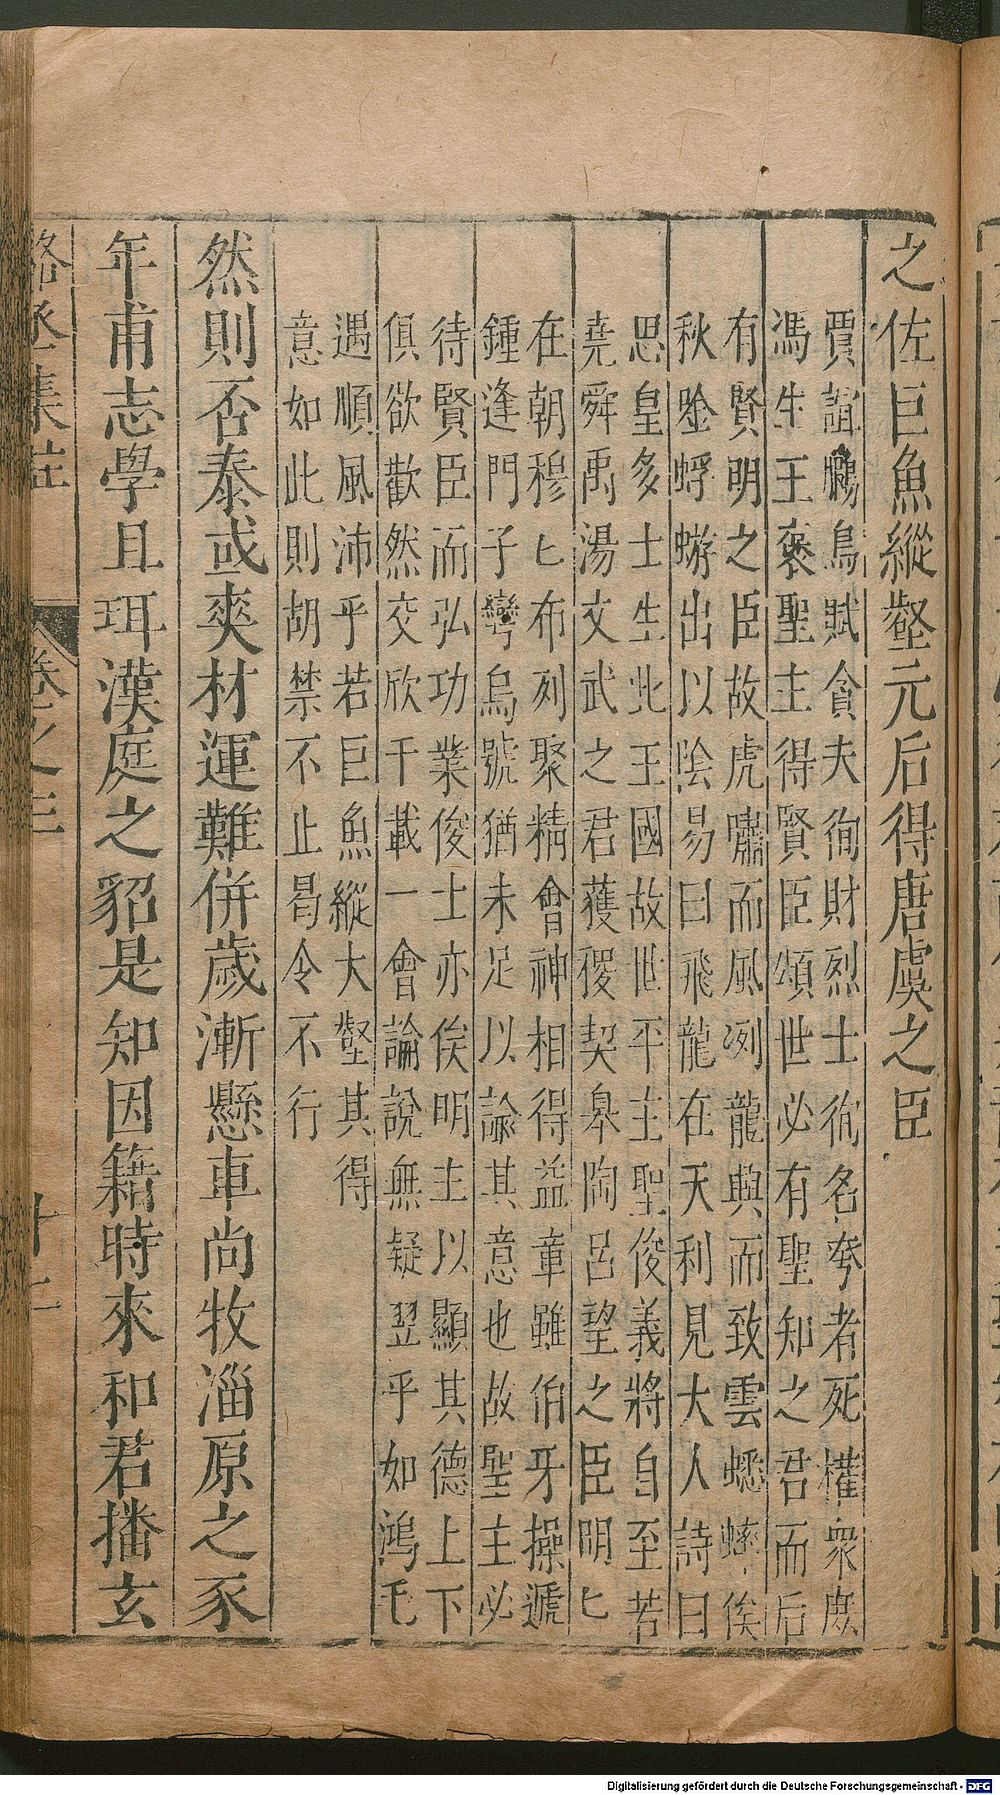 之佐巨魚縱壑元后得唐虞之臣
賈誼鵩鳥賦貪夫徇財烈士徇名夸者死權衆庶
馮生王褒聖主得賢臣頌世必有聖知之君而后
有賢明之臣故虎嘯而風冽龍興而致雲蟋蟀俟
秋唫蜉蝣出以陰易曰飛龍在天利見大人詩曰
思皇多士生此王國故世平主聖俊義將自至若
堯舜禹湯文武之君獲稷契皋陶呂望之臣明匕
在朝穆匕布列聚精會神相得益章雖伯牙操遞
鍾逢門子彎烏號猶未足以諭其意也故聖主必
待賢臣而弘功業俊士亦俟明主以顯其德上下
俱欲歡然交欣千載一會論說無疑翼乎如鴻毛
遇順風沛乎若巨魚縱大壑其得
意如此則胡禁不止曷令不行
然則否泰或爽材運難併歲漸懸車尚牧淄原之豕
年甫志學且珥漢庭之貂是知因籍時來和君播玄
駱丞集註 卷之三 十二
Digitalisierung gefördert durch die Deutsche Forschungsgemeinschaft - DFG